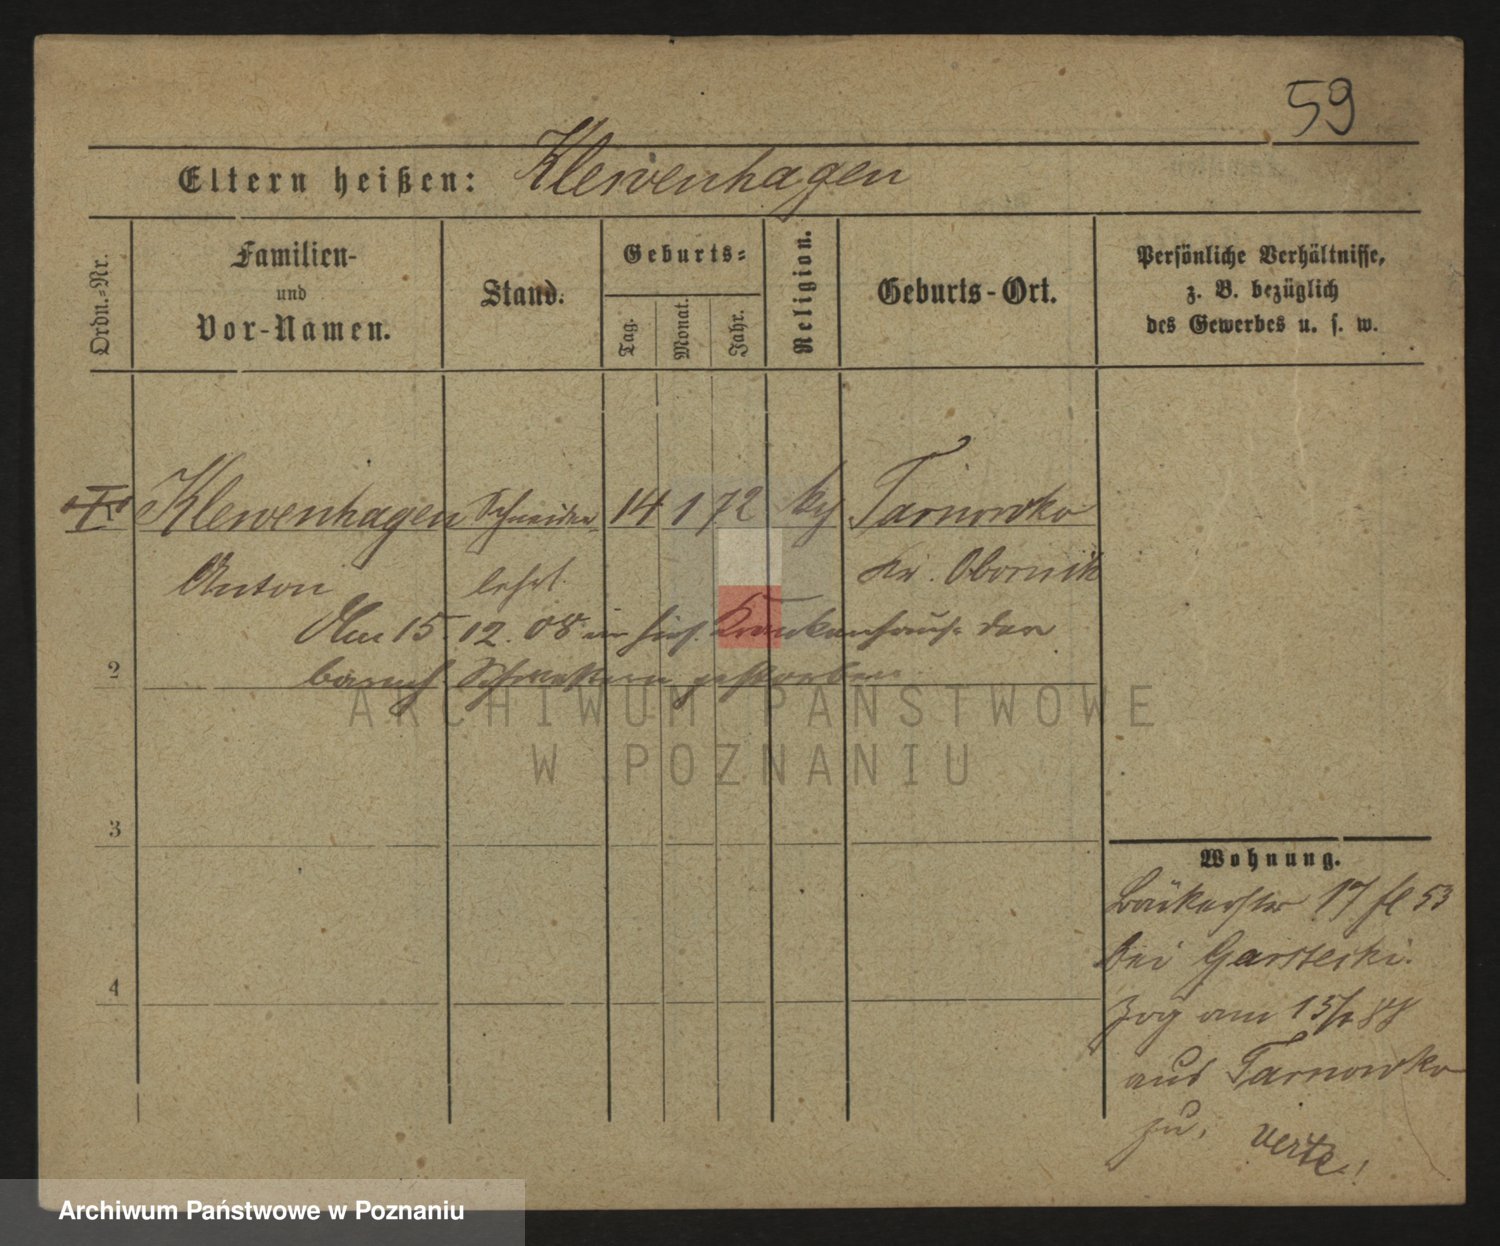 59
Eltern heißen: Klewenhagen
Ordn.-Nr.
Familien-
und
Vor-Namen.
Stand.
Geburts-
Tag.
Monat.
Jahr.
Religion.
Geburts-Ort.
Persönliche Verhältnisse,
z. B. bezüglich
des Gewerbes u. s. w.
Klewenhagen Schneider 14 1 72 kth Tarnowko
Anton lehrl. Kr. Obornik
Am 15. 12. 08 im Krankenhause der
barmh Schwestern gestorben
2
3
4
Wohnung.
Bäckerstr 17 fl 53
bei Garstecki.
zog am 15/ 88
aus Tarnowko
zu. verte!
ARCHIWUM PAŃSTWOWE
W POZNANIU
Archiwum Państwowe w Poznaniu